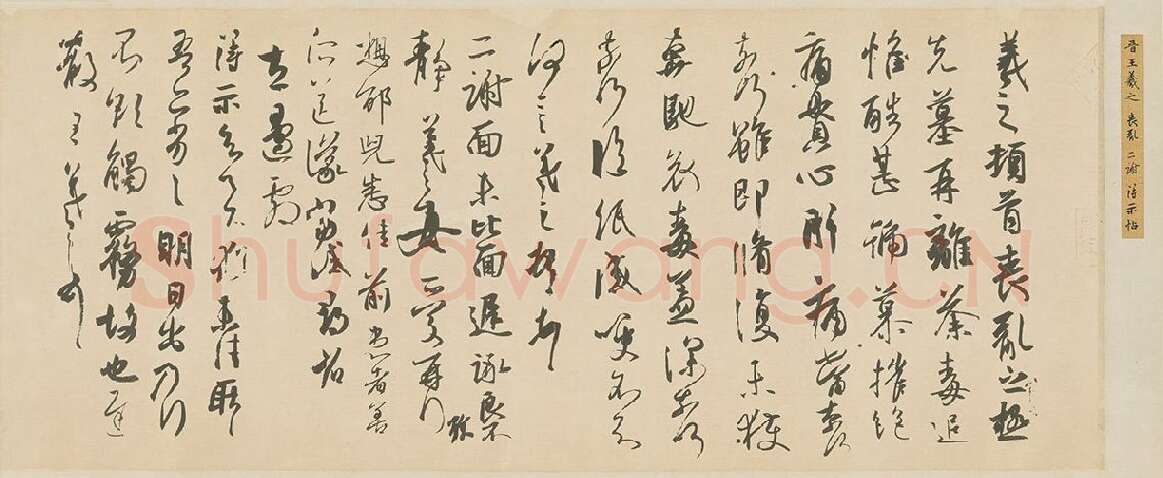 晉王羲之 喪亂 二謝 得示帖
羲之頓首喪亂之極
先墓再離荼毒追
惟酷甚號慕摧絕
痛貫心肝痛當奈何
奈何雖即脩復未獲
奔馳哀毒益深奈何
奈何臨紙感哽不知
何言羲之頓首頓首
二謝面未比面遲詠良不
靜羲之女愛再拜
想邵兒悉佳前患者善
所送議當試尋省
左邊劇
得示知足下猶未佳耿耿
吾亦劣劣明日出乃行
不欲觸霧故也遲
散王羲之頓首
Shufawang.CN